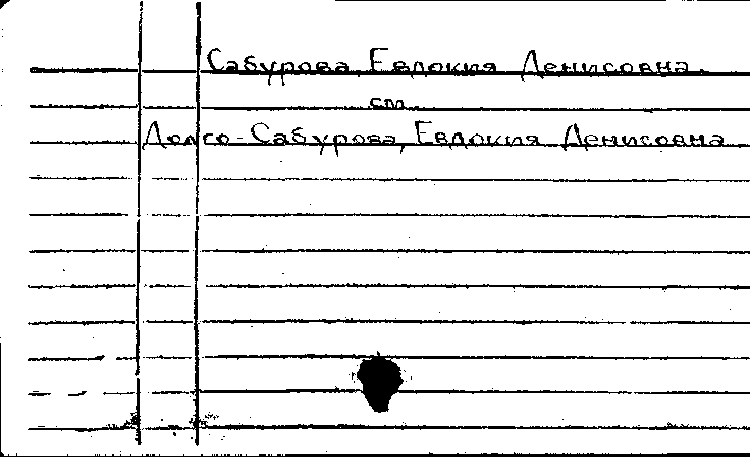 Сабурова, Евдокия Денисовна.
см.
Долго-Сабурова, Евдокия Денисовна